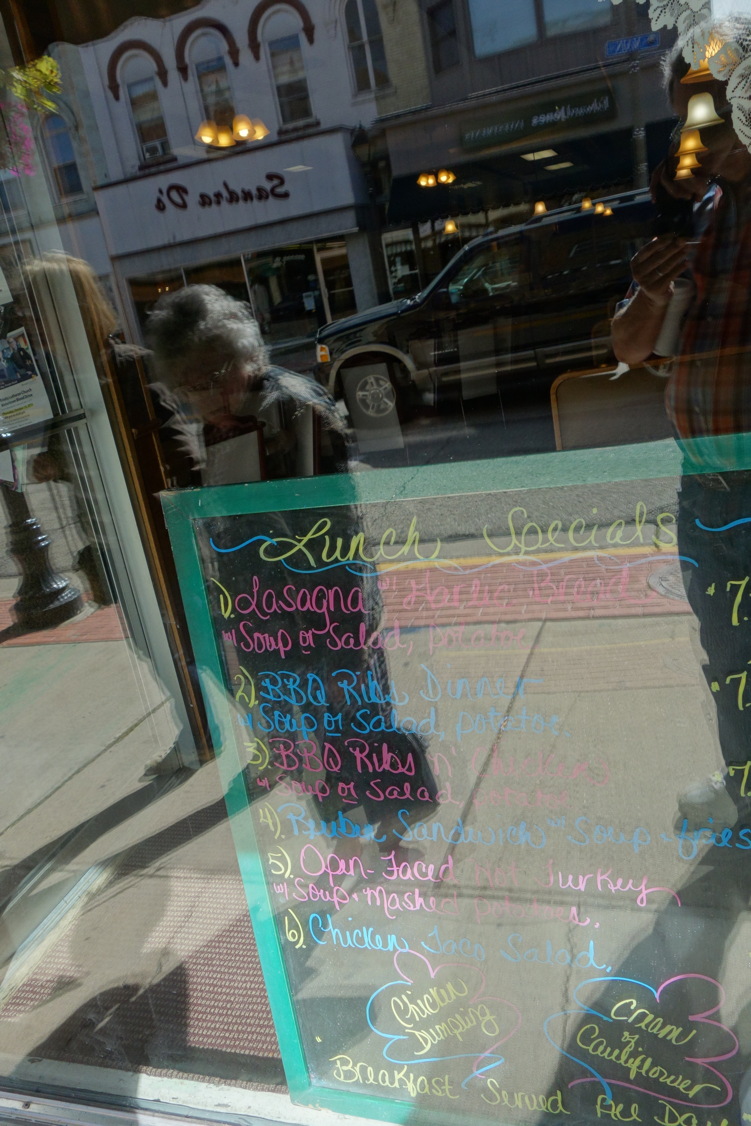 Sandra D's
Edward Jones
INVESTMENTS
Lunch Specials
1). Lasagna w/ Garlic Bread $7.
w/ Soup or Salad, potatoe
2) BBQ Ribs Dinner $7.
w/ Soup or Salad, potatoe.
3) BBQ Ribs n' Chicken $7.
w/ Soup or Salad potatoe
4). Reuben Sandwich w/ Soup + fries
5). Open-Faced Hot Turkey
w/ Soup + Mashed potatoes,
6). Chicken Taco Salad,
Chicken
Dumpling
Cream
of
Cauliflower
"Breakfast Served All Day